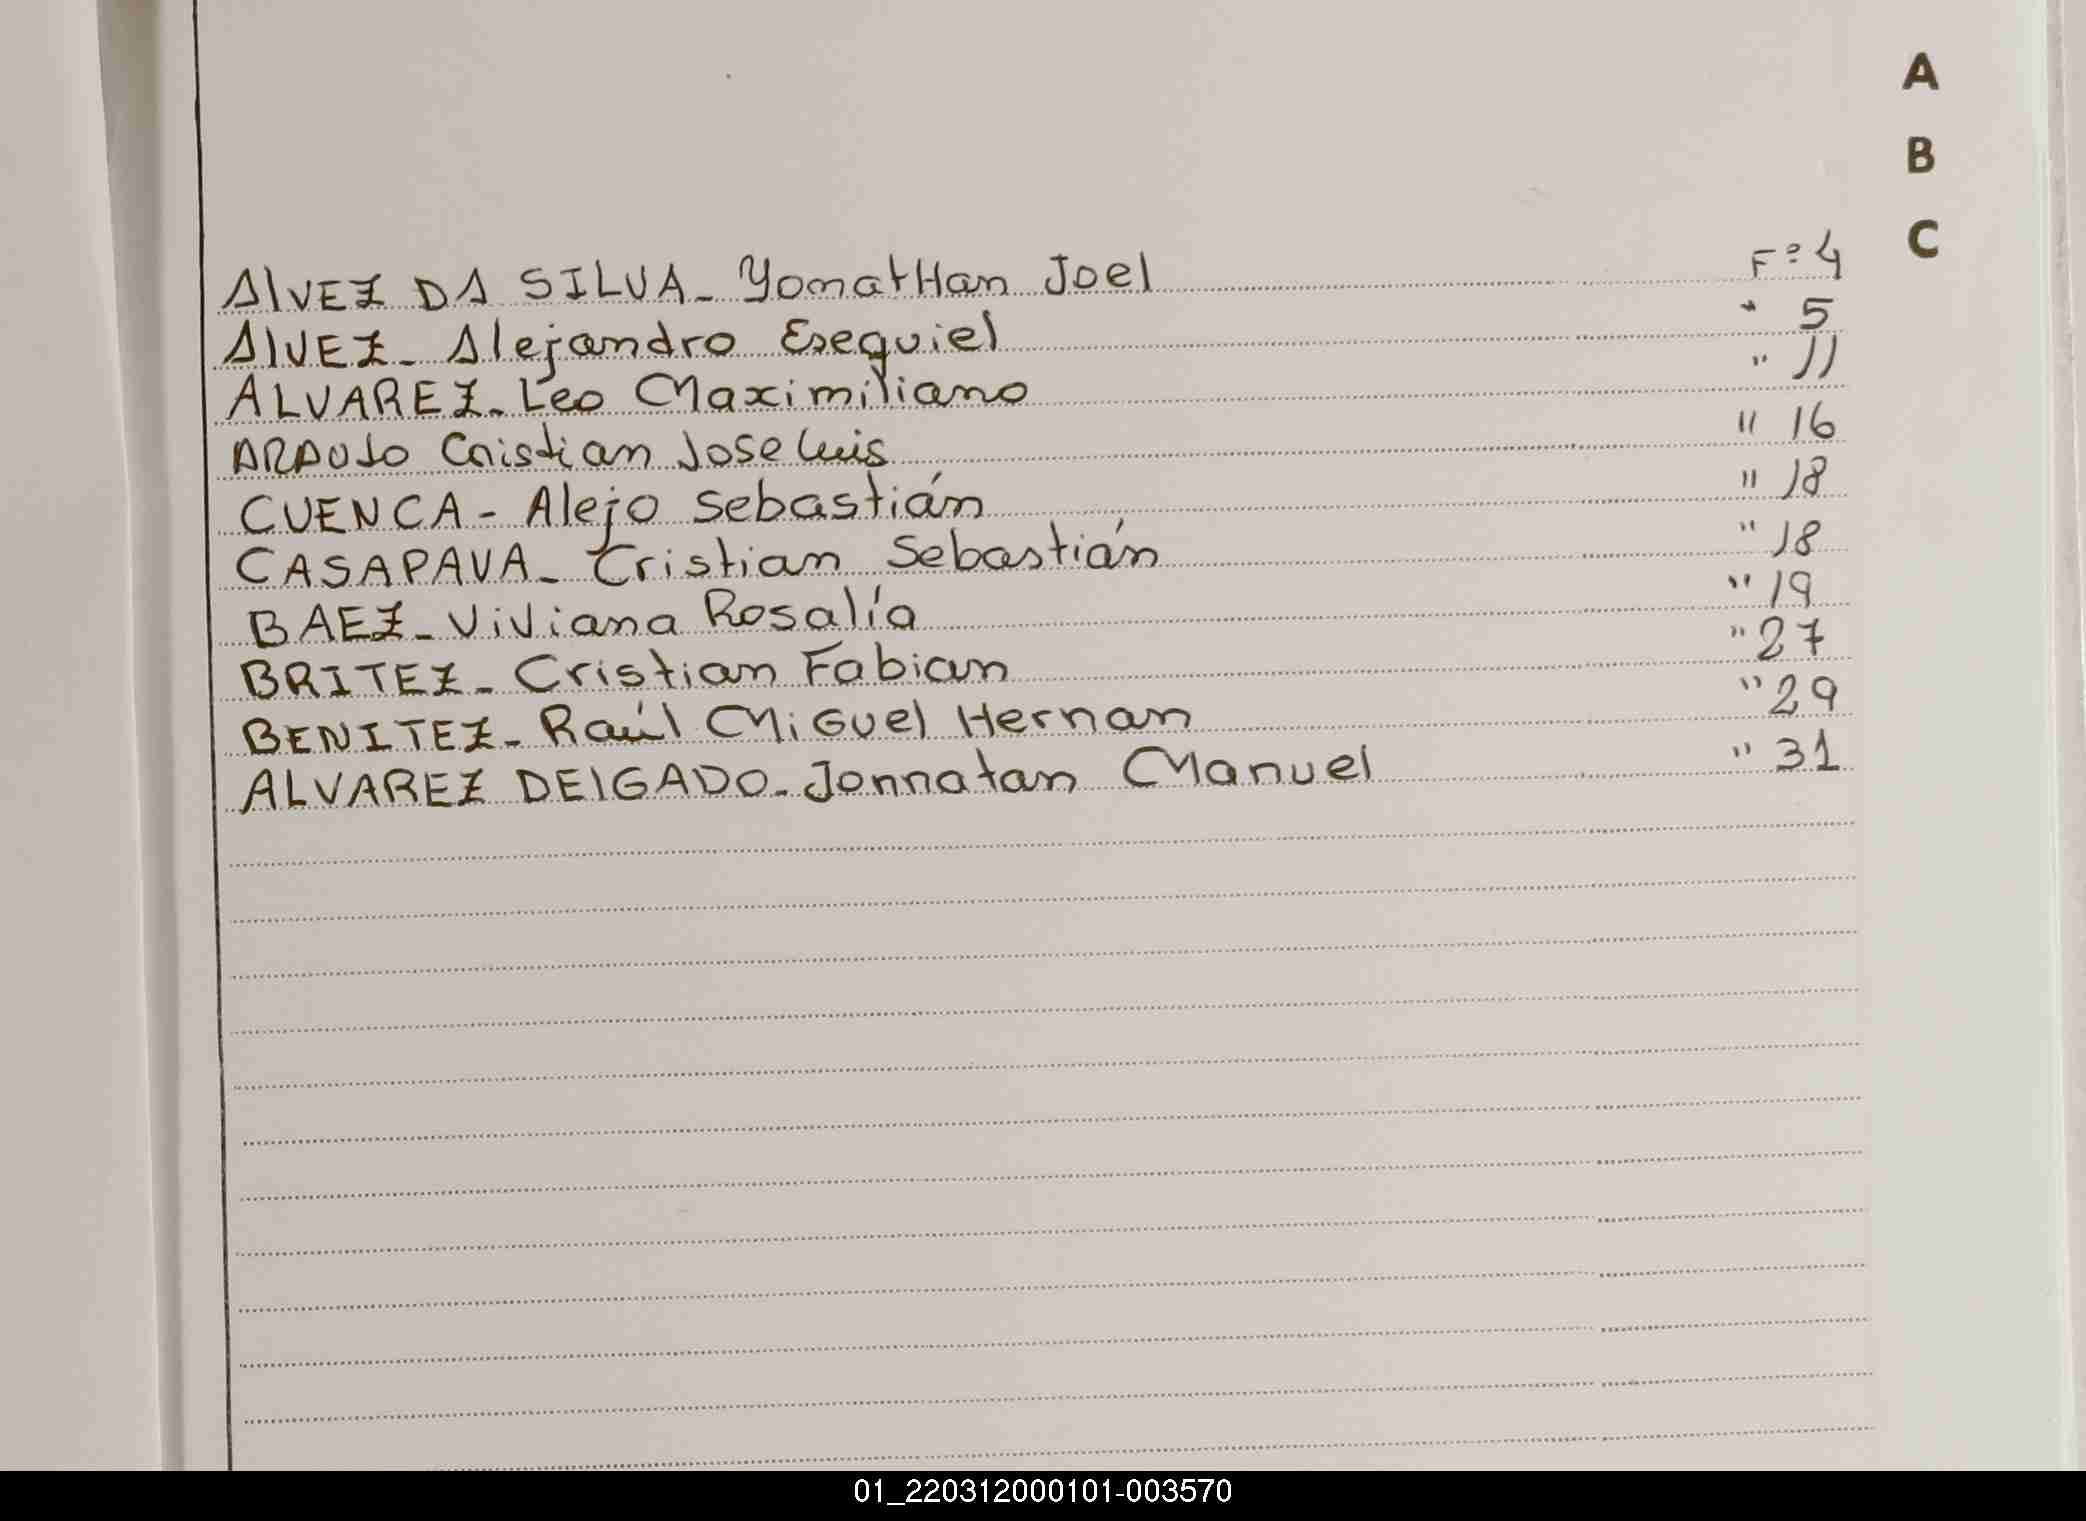 A
B
C
AlVEZ DA SILVA - YonatHan Joel F° 4
AlVEZ - Alejandro Esequiel " 5
ALVAREZ - Leo Maximiliano " 11
ARAUJO Cristian Jose Luis " 16
CUENCA - Alejo Sebastián " 18
CASAPAVA - Cristian Sebastián " 18
BAEZ - Viviana Rosalía " 19
BRITEZ - Cristian Fabian " 27
BENITEZ - Raúl Miguel Hernan " 29
ALVAREZ DElGADO - Jonnatan Manuel " 31
01_220312000101-003570